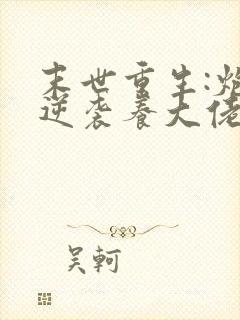 末世重生:炮
逆袭养大佬
吴轲